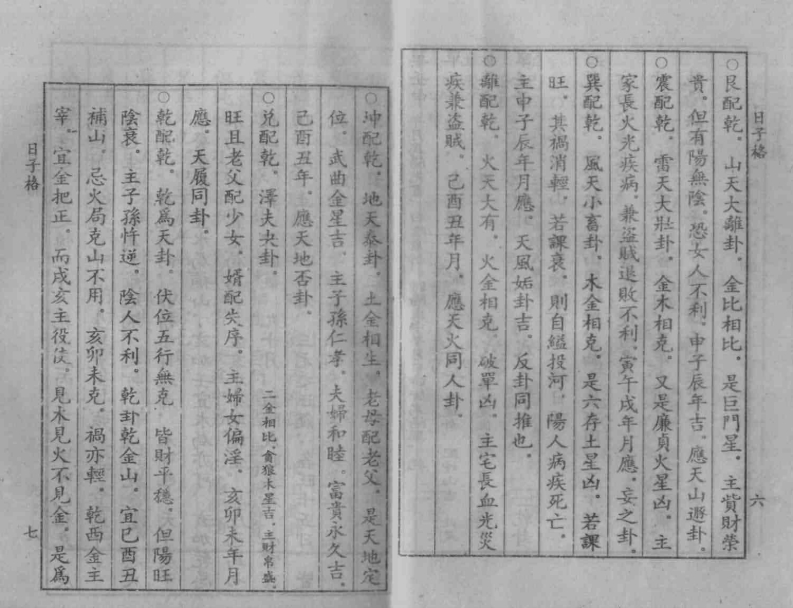 日子格
六
○艮配乾。山天大離卦。金比相比。是巨門星。主貲財榮
貴。但有陽無陰。恐女人不利。申子辰年吉。應天山遯卦。
○震配乾。雷天大壯卦。金木相克。又是廉貞火星凶。主
家長火光疾病。兼盜賊退敗不利。寅午戌年月應。妄之卦。
○巽配乾。風天小畜卦。木金相克。是六存土星凶。若課
旺。其禍消輕。若課衰。則自縊投河。陽人病疾死亡。
主申子辰年月應。天風姤卦吉。反卦同推也。
○離配乾。火天大有。火金相克。破單凶。主宅長血光災
疾兼盜賊。己酉丑年月。應天火同人卦。
○坤配乾。地天泰卦。土金相生。老母配老父。是天地定
位。武曲金星吉。主子孫仁孝。夫婦和睦。富貴永久吉。
己酉丑年。應天地否卦。
○兌配乾。澤夫夬卦。二金相比、貪狼木星吉、主財帛盛、
旺且老父配少女。婿配失序。主婦女偏淫。亥卯未年月
應。天履同卦。
○乾配乾。乾爲天卦。伏位五行無克 皆財平穩。但陽旺
陰衰。主子孫忤逆。陰人不利。乾卦乾金山。宜巳酉丑
補山。忌火局克山不用。亥卯未克。禍亦輕。乾西金主
宰。宜金把正。而戌亥主役伎。見木見火不見金。是爲
日子格
七